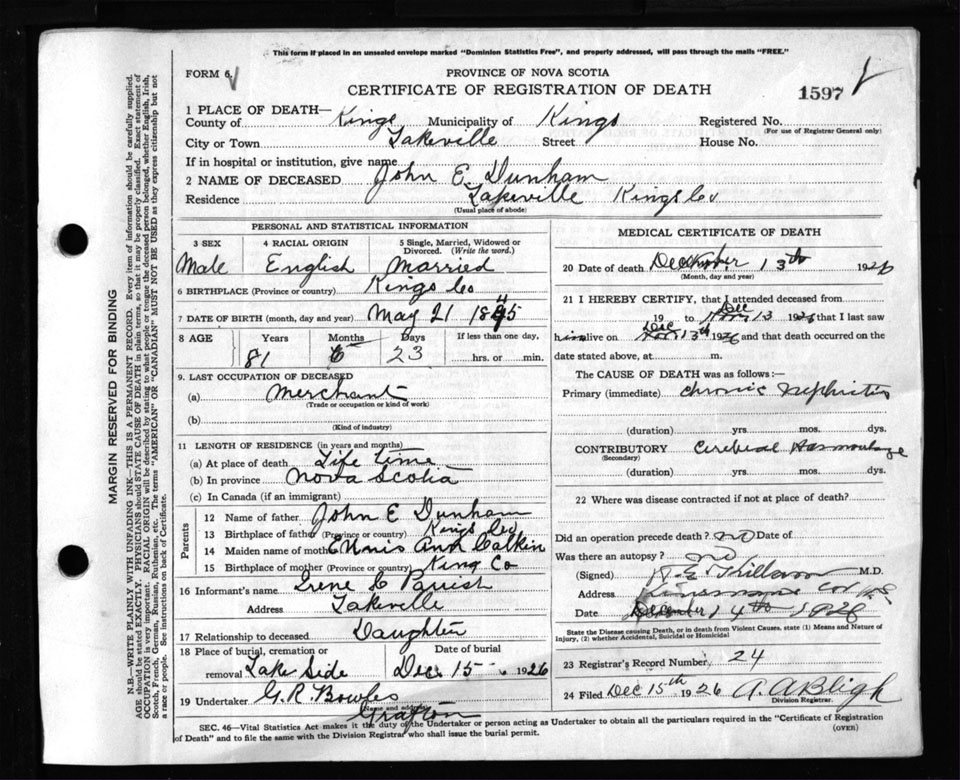 This form if placed in an unsealed envelope marked "Dominion Statistics Free", and properly addressed, will pass through the mails "FREE."
FORM 6.
PROVINCE OF NOVA SCOTIA
CERTIFICATE OF REGISTRATION OF DEATH
1597
1 PLACE OF DEATH—
County of Kings Municipality of Kings Registered No.
(For use of Registrar General only)
City or Town Lakeville Street House No.
If in hospital or institution, give name
2 NAME OF DECEASED John E Dunham
Residence Lakeville Kings Co
(Usual place of abode)
PERSONAL AND STATISTICAL INFORMATION
3 SEX 4 RACIAL ORIGIN 5 Single, Married, Widowed or Divorced. (Write the word.)
Male English Married
6 BIRTHPLACE (Province or country) Kings Co
7 DATE OF BIRTH (month, day and year) May 21 1845
8 AGE Years Months Days If less than one day,
81 6 23 hrs. or min.
9. LAST OCCUPATION OF DECEASED
(a) Merchant
(Trade or occupation or kind of work)
(b)
(Kind of industry)
11 LENGTH OF RESIDENCE (in years and months)
(a) At place of death Life time
(b) In province Nova Scotia
(c) In Canada (if an immigrant)
Parents
12 Name of father John E Dunham
13 Birthplace of father (Province or country) Kings Co
14 Maiden name of mother Ann Calkin
15 Birthplace of mother (Province or country) King Co
16 Informant's name Irene C Parish
Address Lakeville
17 Relationship to deceased Daughter
18 Place of burial, cremation or removal Date of burial
Lake Side Dec 15 1926
19 Undertaker G. R Bowles
(Name and address)
Grafton
MEDICAL CERTIFICATE OF DEATH
20 Date of death December 13th 1926
(Month, day and year)
21 I HEREBY CERTIFY, that I attended deceased from
19 to Dec 13 1926 that I last saw
him alive on Dec 13th 1926 and that death occurred on the
date stated above, at m.
The CAUSE OF DEATH was as follows:—
Primary (immediate) Chronic Nephritis
(duration) yrs. mos. dys.
CONTRIBUTORY Cerebral Hemorrhage
(Secondary)
(duration) yrs. mos. dys.
22 Where was disease contracted if not at place of death?
Did an operation precede death? no Date of
Was there an autopsy? no
(Signed) M.D.
Address
Date December 14th 1926
State the Disease causing Death, or in death from Violent Causes, state (1) Means and Nature of
Injury, (2) whether Accidental, Suicidal or Homicidal
23 Registrar's Record Number 24
24 Filed Dec 15th 1926 A. A Bligh
Division Registrar.
SEC. 46—Vital Statistics Act makes it the duty of the Undertaker or person acting as Undertaker to obtain all the particulars required in the "Certificate of Registration
of Death" and to file the same with the Division Registrar who shall issue the burial permit.
(OVER)
MARGIN RESERVED FOR BINDING
N.B.—WRITE PLAINLY WITH UNFADING INK—THIS IS A PERMANENT RECORD. Every item of information should be carefully supplied.
AGE should be stated EXACTLY. PHYSICIANS should STATE CAUSE OF DEATH in plain terms, so that it may be properly classified. Exact statement of
OCCUPATION is very important. RACIAL ORIGIN will be described by stating to what people or tongue the deceased person belonged, whether English, Irish,
Scotch, French, German, Russian, Ruthenian, etc. The terms "AMERICAN" OR "CANADIAN" MUST NOT BE USED as they express citizenship but not
a race or people. See instructions on back of Certificate.